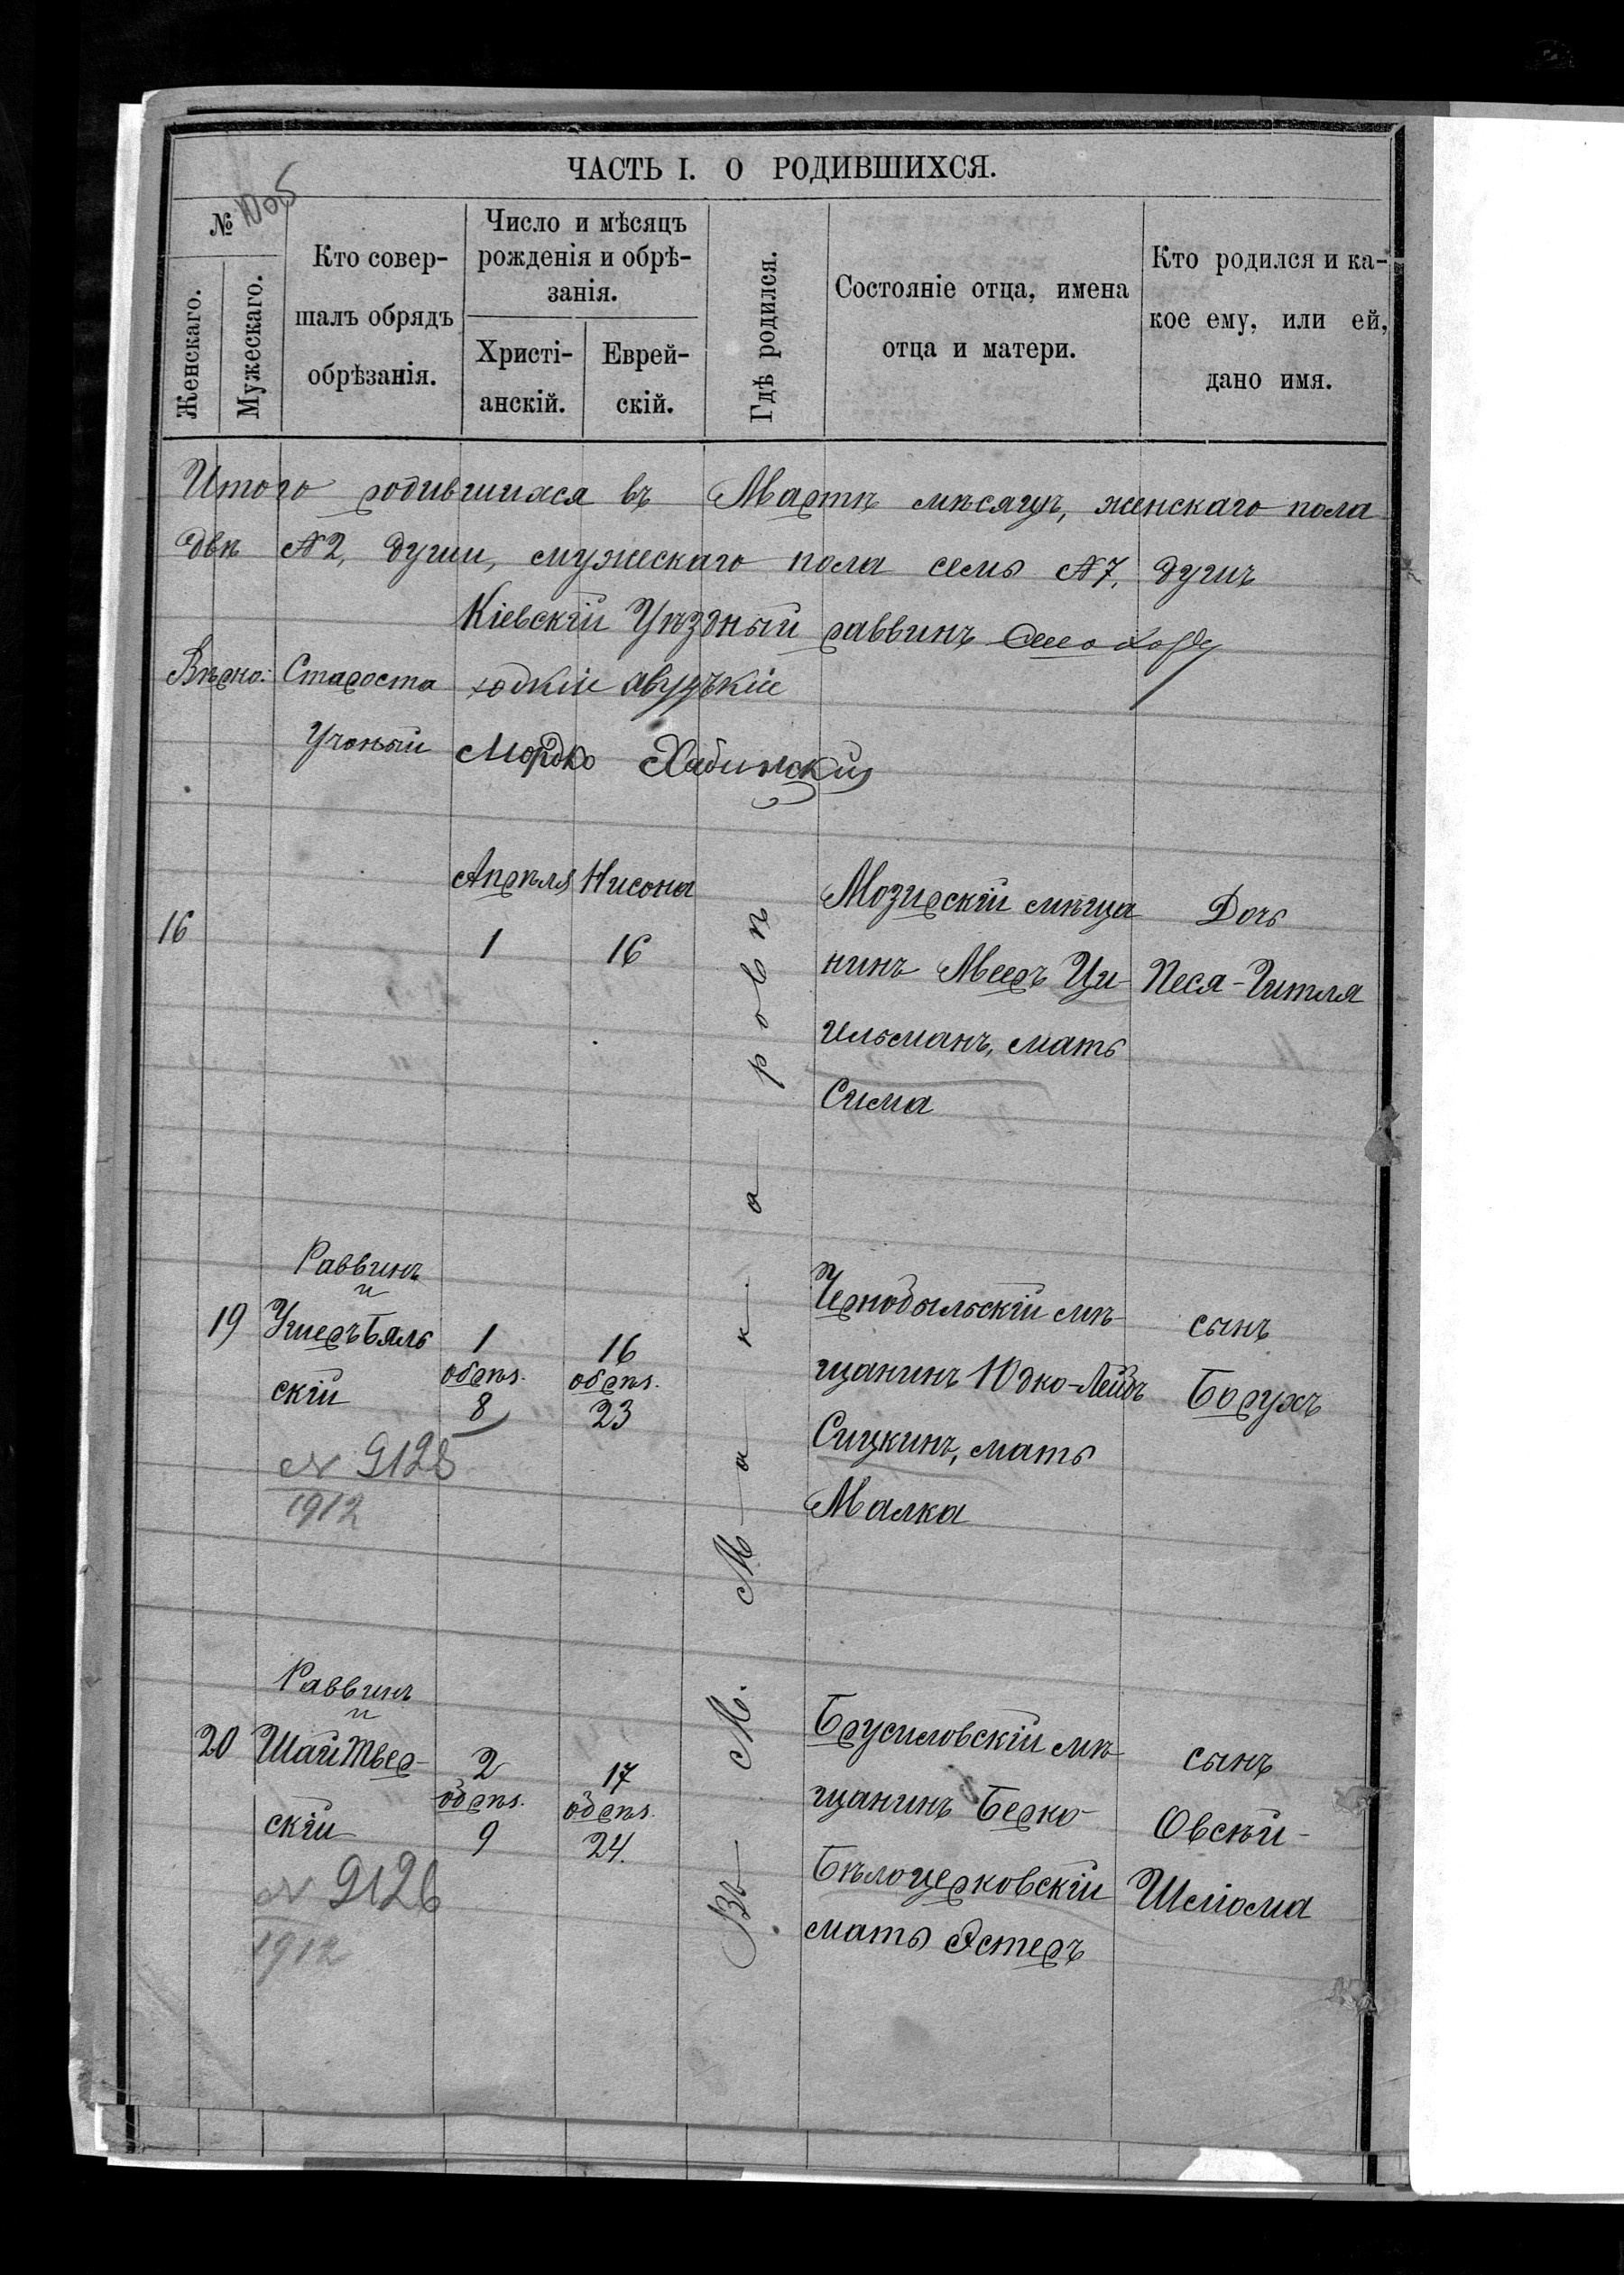 ЧАСТЬ I. О РОДИВШИХСЯ.
№
Женскаго.
Мужескаго.
Кто совер-
шалъ обрядъ
обрѣзанія.
Число и мѣсяцъ
рожденія и обрѣ-
занія.
Христі-
анскій.
Еврей-
скій.
Гдѣ родился.
Состояніе отца, имена
отца и матери.
Кто родился и ка-
кое ему, или ей,
дано имя.
Итого родившихся въ Мартѣ мѣсяцѣ, женскаго пола
двѣ №2, души, мужескаго пола семь №7, душъ
Кіевскій Уѣздный раввинъ
Вѣрно: Староста
Ученый Мордко Хабинскій
Въ М. Макаровѣ
16
Апрѣля
1
Нисона
16
Мозирскій мѣща
нинъ Мееръ Ци-
ильманъ, мать
Сима
Дочь
Песя-Гитля
19
Раввинъ
и
Ушеръ Бяль
скій
№ 9125
1912
1
обрѣз.
8
16
обрѣз.
23
Чернобыльскій мѣ-
щанинъ Юдко-Лейбъ
Сицкинъ, мать
Малка
сынъ
Борухъ
20
Раввинъ
и
Шай Твер-
скій
№ 9126
1912
2
обрѣз.
9
17
обрѣз.
24.
Брусиловскій мѣ-
щанинъ Берко
Бѣлоцерковскій
мать Эстеръ
сынъ
Овсѣй-
Шліома